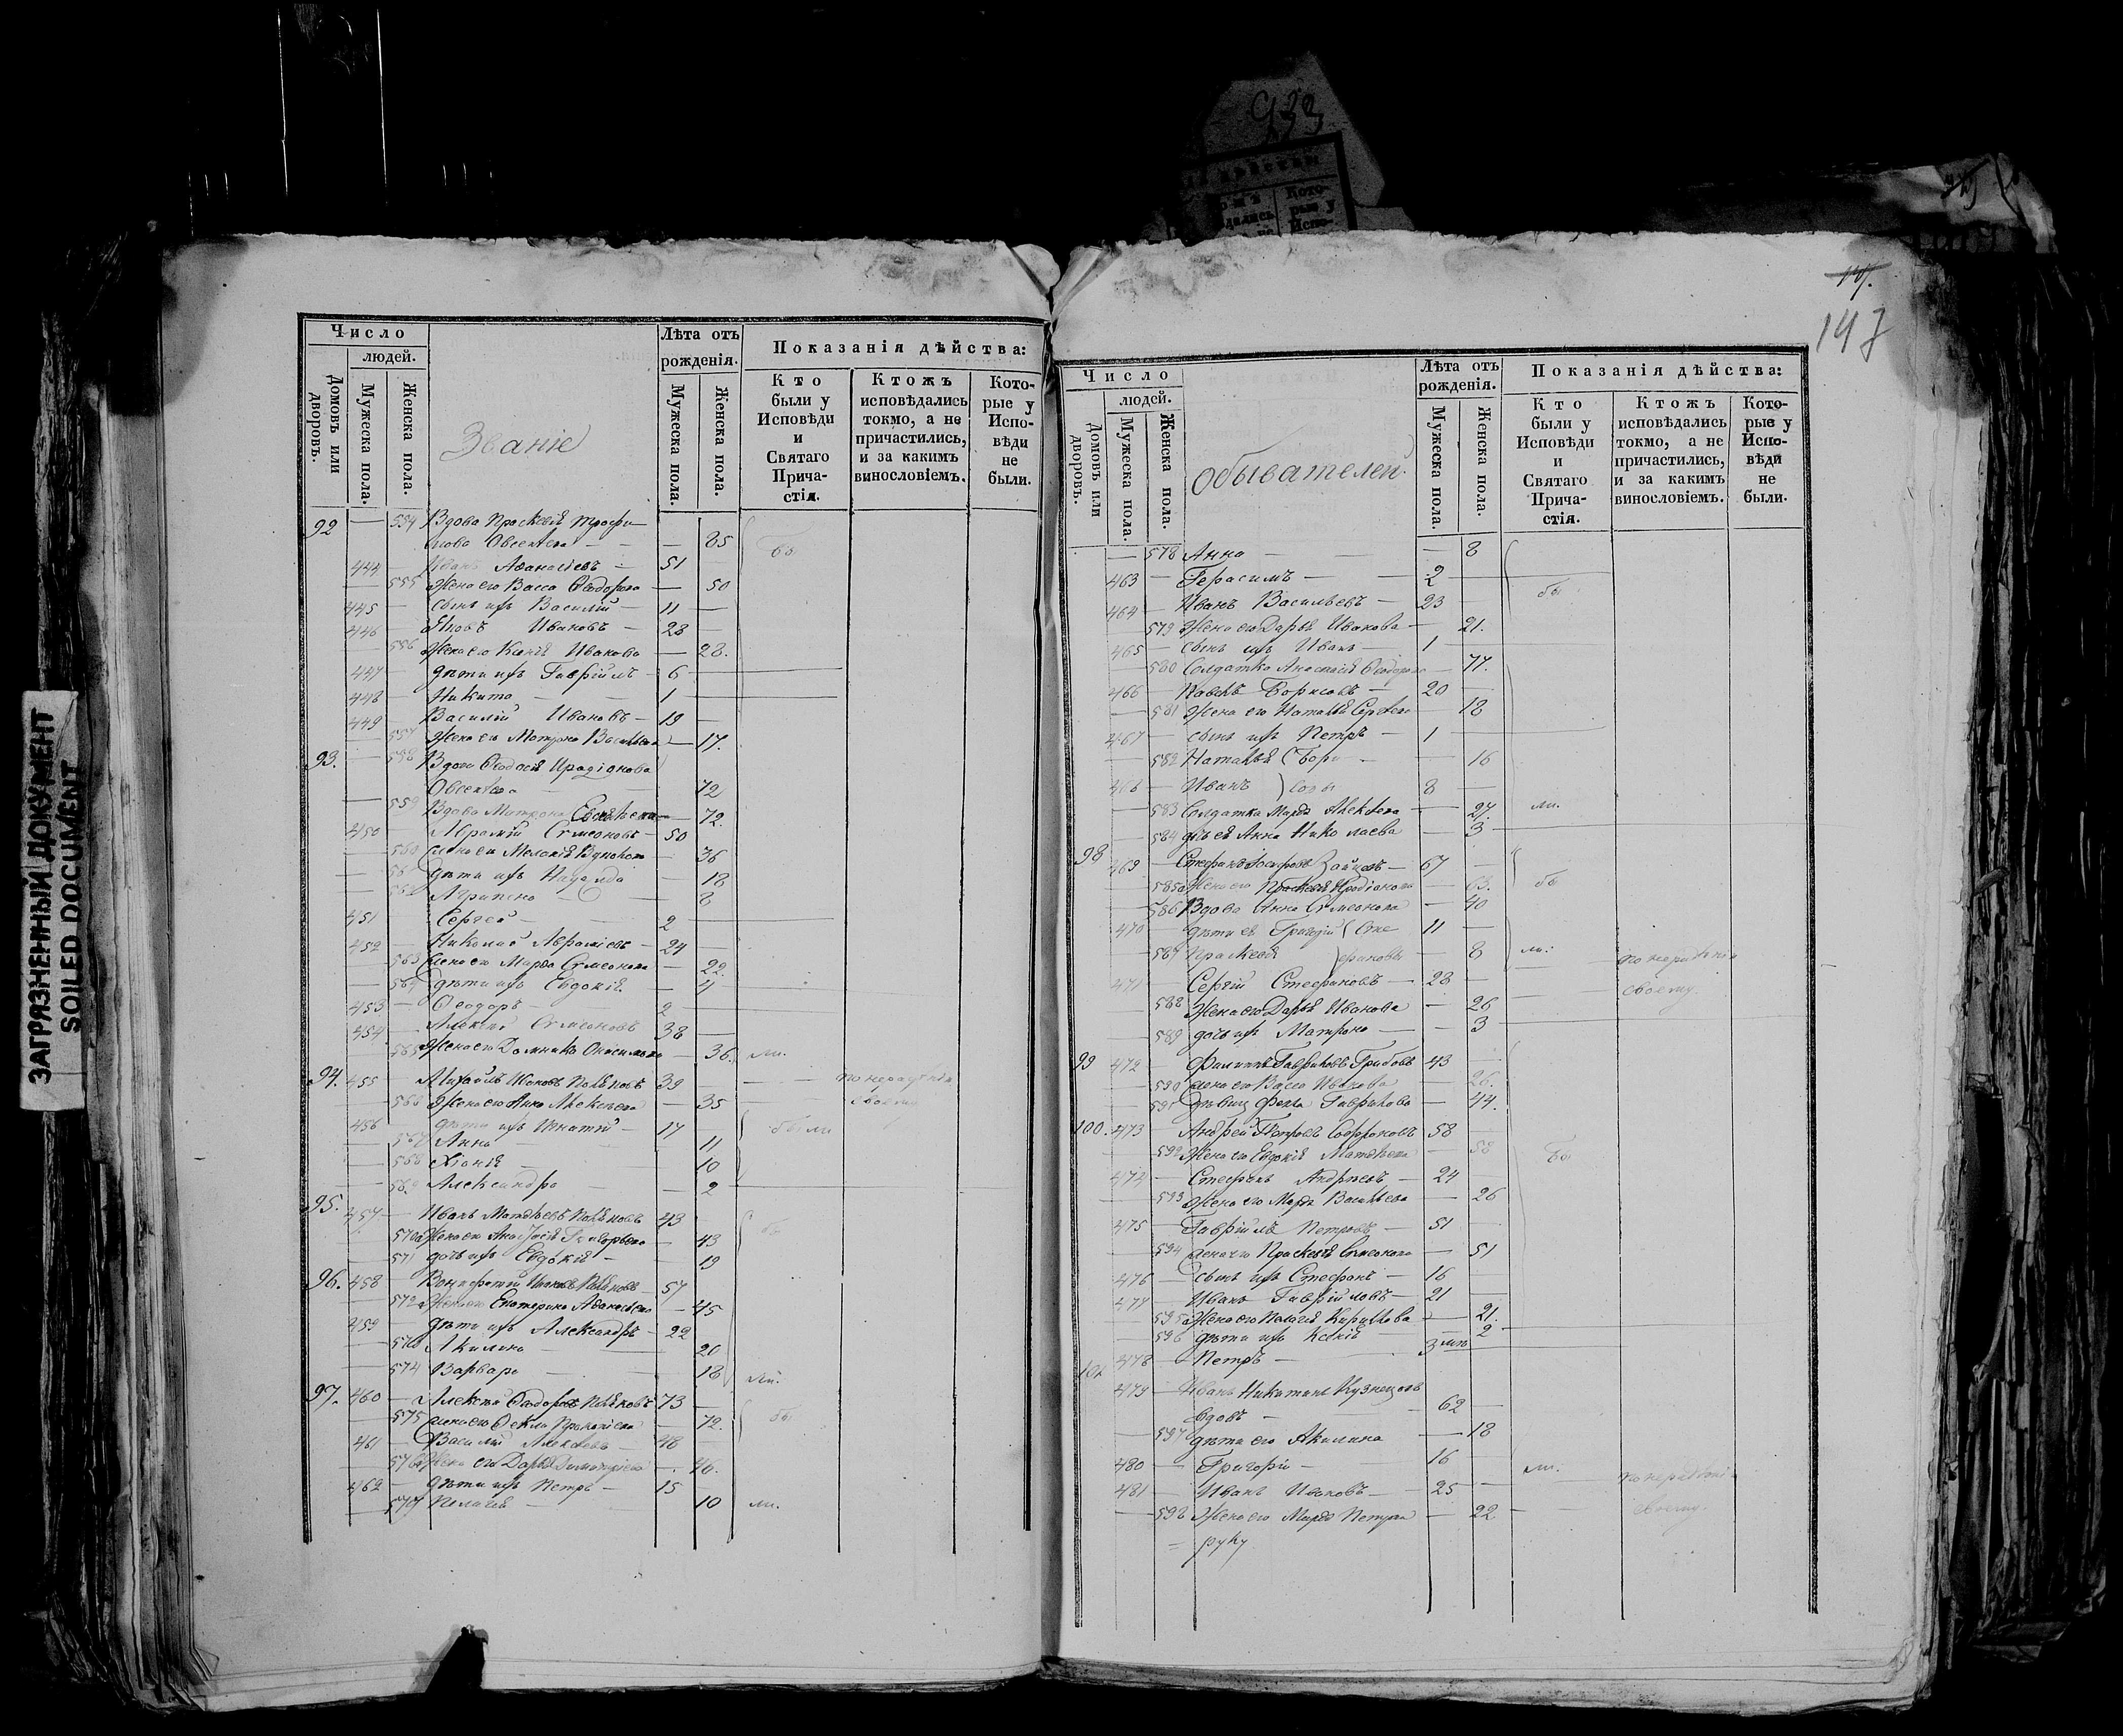 923
147
ЗАГРЯЗНЕННЫЙ ДОКУМЕНТ
SOILED DOCUMENT
Число
людей.
Домовъ или дворовъ.
Мужеска пола.
Женска пола.
Званіе
Лѣта отъ рожденія.
Мужеска пола.
Женска пола.
Показанія дѣйства:
Кто были у Исповѣди и Святаго Прича-стія.
Ктожъ исповѣдались токмо, а не причастились, и за какимъ винословіемъ.
Кото-рые у Испо-вѣди не были.
92 — 554 Вдова Праскевія Трофи-
мова Овсеева — — 85 бы
444 — Иванъ Аѳанасіевъ — 51
— 555 Жена его Васса Ѳеодорова — 50
445 — сынъ ихъ Василій — 11 —
446 — Яковъ Ивановъ — 28
— 556 Жена его Ксенія Иванова — 28.
447 — дѣти ихъ Гавріилъ — 6 —
448 — Никита — 1 —
449 — Василій Ивановъ — 19 —
— 557 Жена его Матрона Васильева — 17.
93. — 558 Вдова Ѳеодосія Иродіонова
— 72
— 559 Вдова Матрона — 72.
450 — Аврамій Симеоновъ — 50
— 560 Жена его Меланія — 36
— 561 дѣти ихъ Надежда — 18
— 562 Агрипена — 8
451 — Сергей — 2
452 — Николай Авраміевъ — 24 —
— 563 Жена его Марѳа Симеонова — 22.
— 564 дѣти ихъ Евдокія — 4
453 — Ѳеодоръ — 2
454 — Алексій Симеоновъ 38 —
— 565 Жена его Домника Онисимова — 36. ли.
94. 455 — Михаилъ Поляковъ 39 — — по нерадѣнію
— 566 Жена его Анна Алексѣева — 35 своему
456 дѣти ихъ Игнатій — 17 были
— 567 Анна — 11
— 568 Хіонія — 10
— 569 Александра — 2
95. 457 — Иванъ Матѳѣевъ Поляковъ 43 бы
— 570 Жена его Анастасія Григорьева — 43
— 571 дочь ихъ Евдокія — 19
96. 458 — Вонифатій Поляковъ 57
— 572 Жена его Екатерина Аѳанасьева — 45
459 — дѣти ихъ Александръ — 22
— 573 Акилина — 20
— 574 Варвара — 18 ли.
97. 460 — Алексѣй Ѳеодоровъ Поляковъ 73 —
— 575 Жена его Ѳекла Прокопіева — 72. бы
461 — Василій Алексѣевъ — 48 —
— 576 Жена его Дарья Димитріева — 46.
462 — дѣти ихъ Петръ — 15
— 577 Пелагея — 10 ли.
Число
людей.
Домовъ или дворовъ.
Мужеска пола.
Женска пола.
обывателей.
Лѣта отъ рожденія.
Мужеска пола.
Женска пола.
Показанія дѣйства:
Кто были у Исповѣди и Святаго Прича-стія.
Ктожъ исповѣдались токмо, а не причастились, и за какимъ винословіемъ.
Кото-рые у Испо-вѣди не были.
— 578 Анна — — 8
463 — Герасимъ — 2
464 — Иванъ Васильевъ — 23 бы
— 579 Жена его Дарья Иванова — 21.
465 — сынъ ихъ Иванъ — 1
— 580 Солдатка Анастасія Ѳеодорова — 77.
466 — Павелъ Борисовъ — 20 —
— 581 Жена его Наталья Сергѣева — 18
467 — сынъ ихъ Петръ — 1
— 582 Наталья (Бори — 16
468 — Иванъ )совы 8 —
— 583 Солдатка Марѳа Алексѣева — 27. ли.
— 584 дочь ея Анна Николаева — 3
98 469 — Стефанъ Зайцевъ — 67 —
— 585 Жена его Праскевія Иродіонова — 63. бы
— 586 Вдова Анна Симеонова — 40
470 — дѣти ея Григорій (Сте 11 —
— 587 Праскевія )фановы — 8 ли: по нерадѣнію
471 — Сергій Стефановъ — 28 — своему.
— 588 Жена его Дарья Иванова — 26
— 589 дочь ихъ Матрона — 3
99 472 — Филиппъ Гавриловъ Грибовъ 43 —
— 590 Жена его Васса Иванова — 26.
— 591 дѣвица Фекла Гаврилова — 44.
100. 473 — Андрей Петровъ Софроновъ 58
— 592 Жена его Евдокія Матвѣева — 58 бы
474 — Стефанъ Андреевъ — 24
— 593 Жена его Марѳа Васильева — 26
475 — Гавріилъ Петровъ — 51
— 594 Жена его Праскевія Симеонова — 51
476 — сынъ ихъ Стефанъ — 16
477 — Иванъ Гавріиловъ — 21
— 595 Жена его Пелагея Кирилова — 21.
— 596 дѣти ихъ Ксенія — 2
478 — Петръ — 3 мѣс
101 479 — Иванъ Никитинъ Кузнецовъ
вдовъ — 62 —
— 597 дѣти его Акилина — 18
480 — Григорій — 16 ли.
481 — Иванъ Ивановъ — 25 — по нерадѣнію
— 598 Жена его Марѳа Петрова — 22 своему.